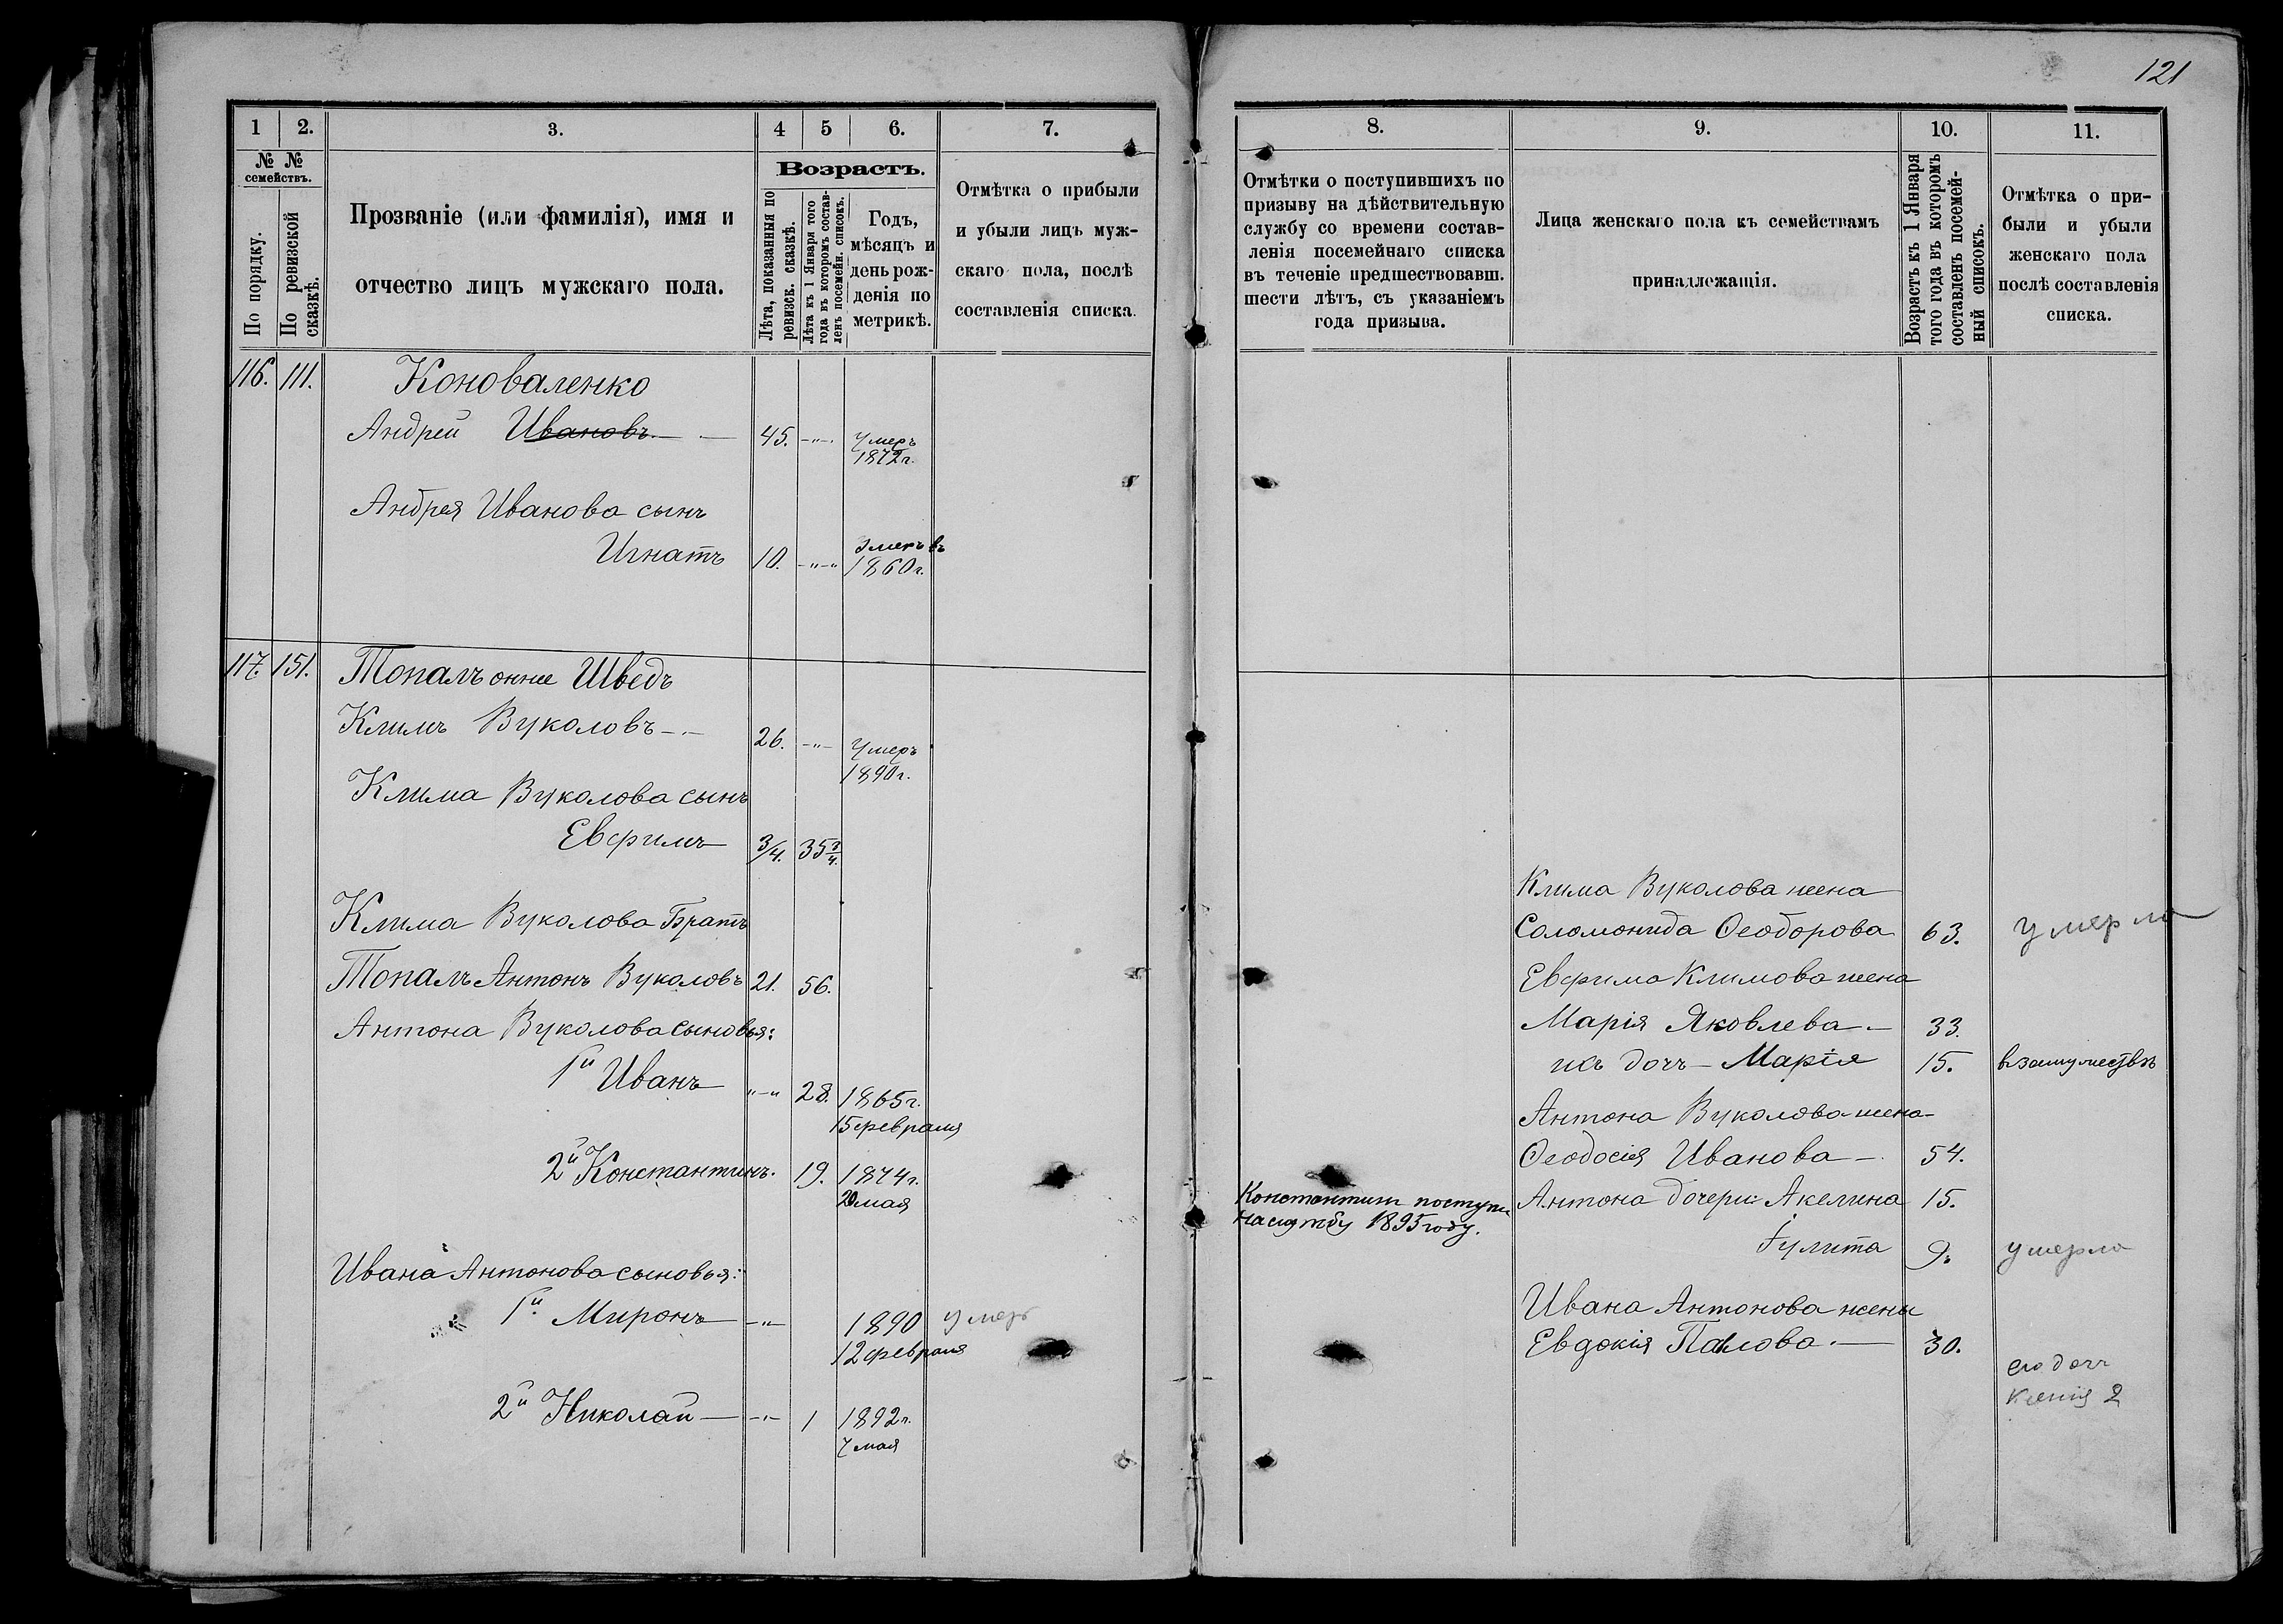 121
1
2.
3.
4
5
6.
7.
№ №
семействъ.
По порядку.
По ревизской
сказкѣ.
Прозваніе (или фамилія), имя и
отчество лицъ мужскаго пола.
Возрастъ.
Лѣта, показанныя по
ревизск. сказкѣ.
Лѣта къ 1 Января того
года въ которомъ состав-
ленъ посемейн. списокъ.
Годъ,
мѣсяцъ и
день рож-
денія по
метрикѣ.
Отмѣтка о прибыли
и убыли лицъ муж-
скаго пола, послѣ
составленія списка.
116. 111. Коноваленко
Андрей Ивановъ 45. -"-. Умеръ
1872 г.
Андрея Иванова сынъ
Игнатъ 10. -"-" Умеръ въ
1860 г.
117. 151. Топалъ онже Шведъ
Климъ Вуколовъ -.- 26. -"- Умеръ
1890 г.
Клима Вуколова сынъ
Евфимъ 3/4. 35 3/4.
Клима Вуколова Братъ
Топалъ Антонъ Вуколовъ 21. 56.
Антона Вуколова сыновья:
1й Иванъ "-" 28. 1865 г.
15 февраля
2й Константинъ. 19. 1874 г.
20 мая
Ивана Антонова сыновья:
1й Миронъ -"- 1890 умеръ
12 февраля
2й Николай -"- 1 1892 г.
7 мая
8.
9.
10.
11.
Отмѣтки о поступившихъ по
призыву на дѣйствительную
службу со времени состав-
ленія посемейнаго списка
въ теченіе предшествовавш.
шести лѣтъ, съ указаніемъ
года призыва.
Лица женскаго пола къ семействамъ
принадлежащія.
Возрастъ къ 1 Января
того года въ которомъ
составленъ посемей-
ный списокъ.
Отмѣтка о при-
были и убыли
женскаго пола
послѣ составленія
списка.
Клима Вуколова жена
Соломонида Ѳеодорова 63. умерла
Евфима Климова жена
Марія Яковлева - 33.
ихъ дочь - Марія 15. в замужествѣ
Антона Вуколова жена -
Ѳеодосія Иванова - 54.
Константин поступил
на службу 1895 году.
Антона дочери: Акелина 15.
Iулита 9. умерла
Ивана Антонова жены
Евдокія Павлова. - 30.
его дочь